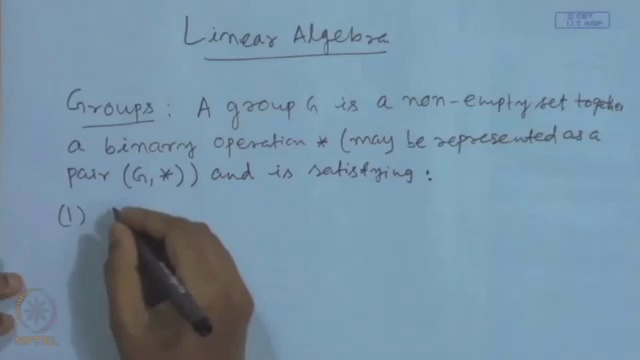 © CET
I.I.T. KGP
Linear Algebra
Groups : A group G is a non-empty set together
a binary operation * (may be represented as a
pair (G, *)) and is satisfying :
(1)
NPTEL